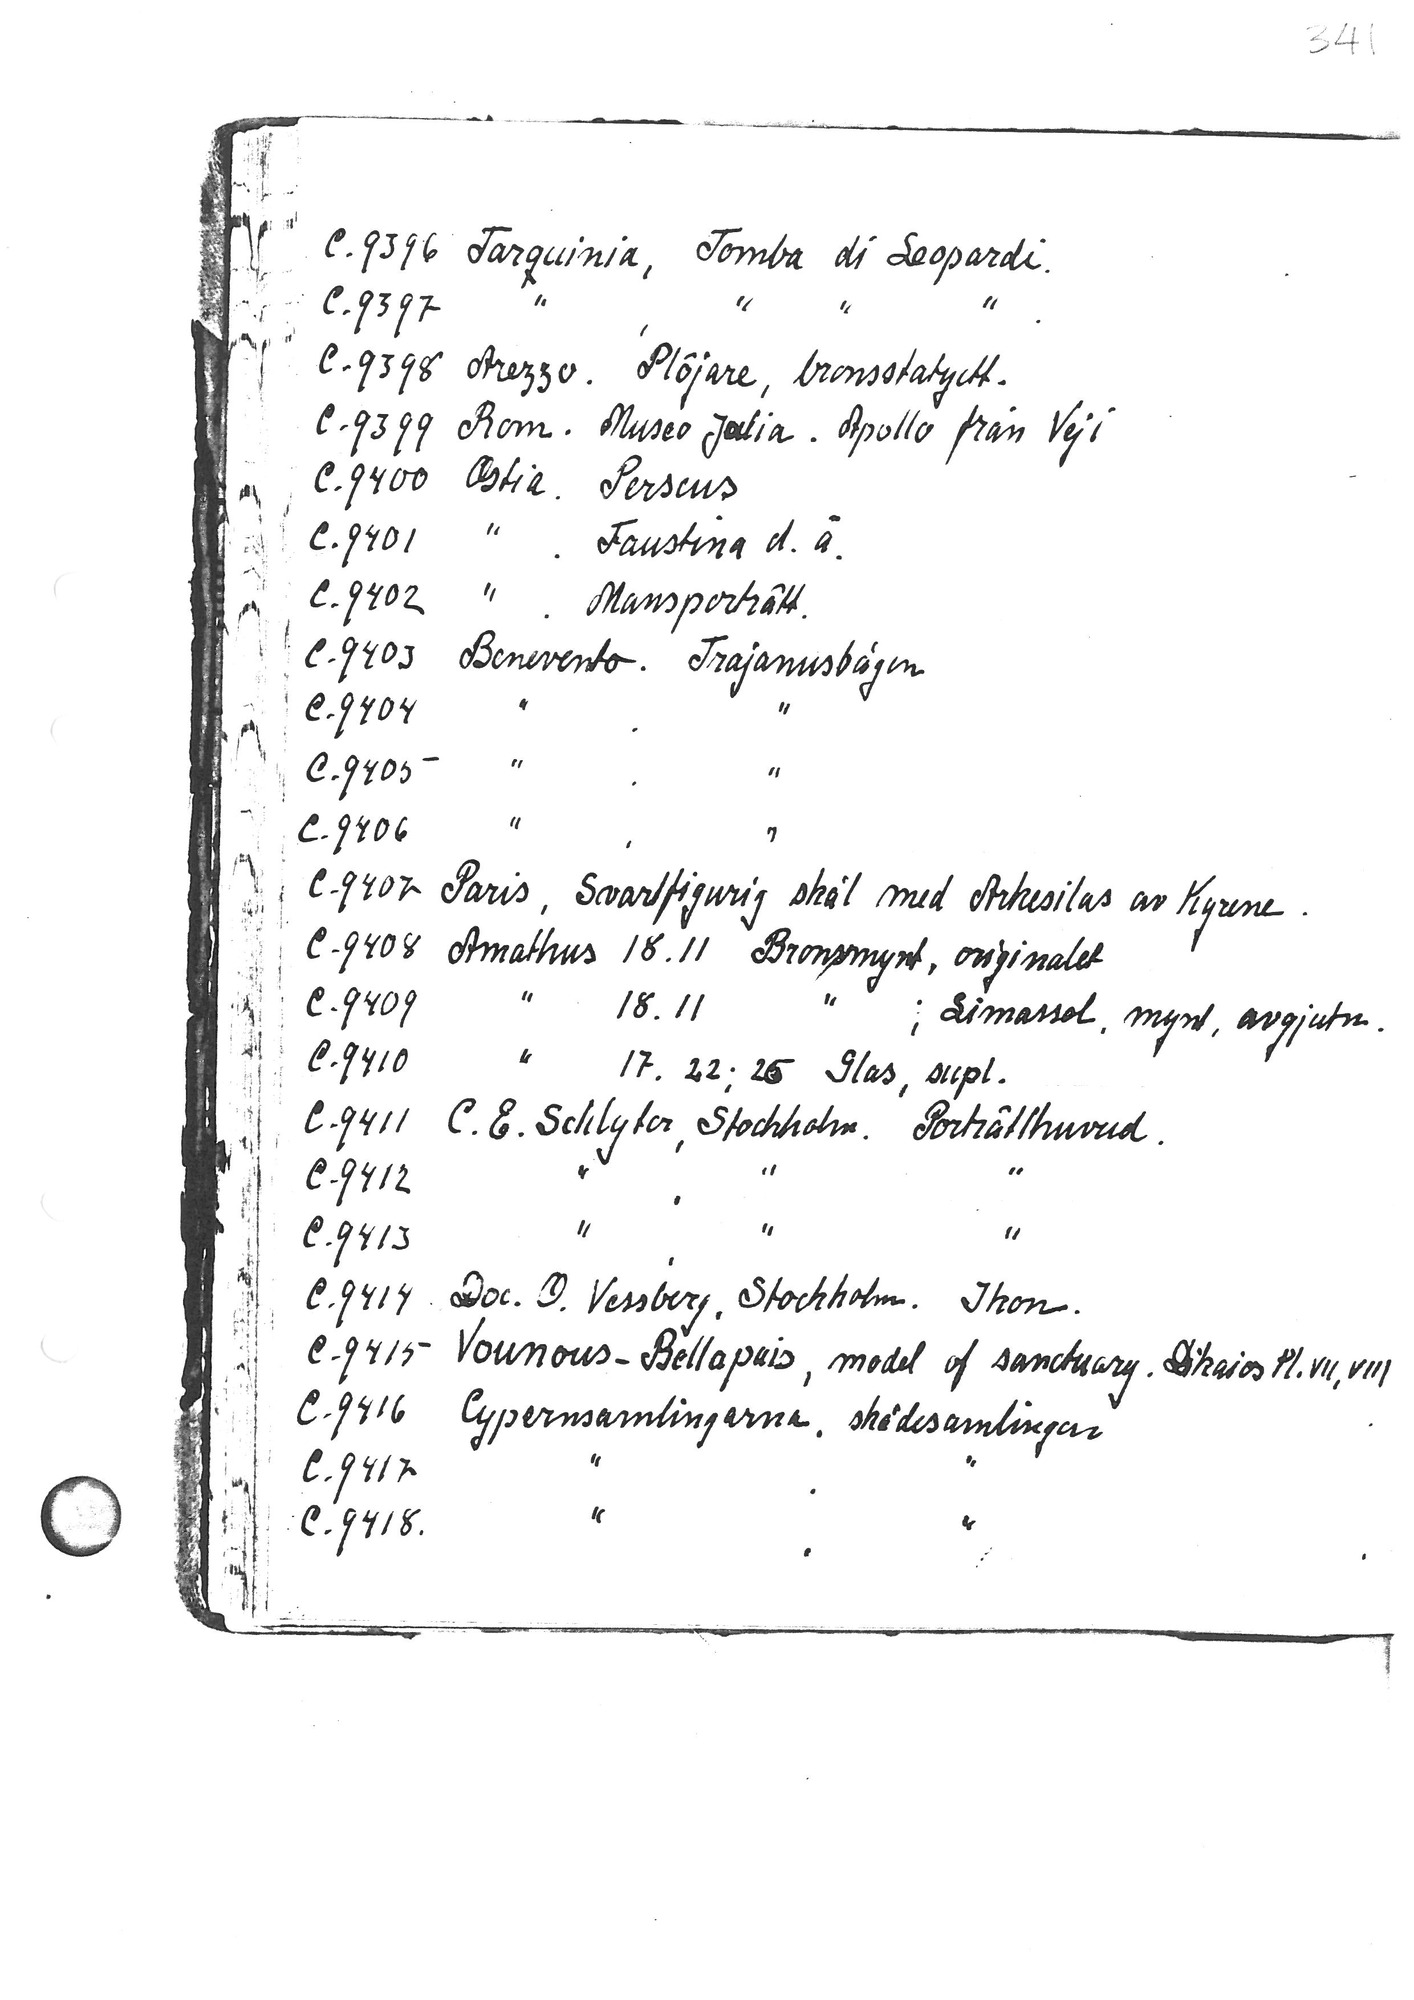 341
C.9396 Tarquinia, Tomba di Leopardi.
C.9397 " , " " " .
C.9398 Arezzo. Plöjare, bronsstatyett.
C.9399 Rom. Museo Julia. Apollo från Veji
C.9400 Ostia. Perseus
C.9401 " . Faustina d. ä.
C.9402 " . Mansporträtt.
C.9403 Benevento. Trajanusbågen
C.9404 " . "
C.9405 " . "
C.9406 " . "
C.9407 Paris, Svartfigurig skål med Arkesilas av Kyrene.
C.9408 Amathus 18.11 Bronsmynt, originalet
C.9409 " 18.11 " ; Limassol, mynt, avgjutn.
C.9410 " 17. 22; 25 Glas, supl.
C.9411 C. E. Schlyter, Stockholm. Porträtthuvud.
C.9412 " , " "
C.9413 " , " "
C.9414 Doc. O. Vessberg, Stockholm. Ikon.
C.9415 Vounous-Bellapais, model of sanctuary. Dikaios Pl. VII, VIII
C.9416 Cypernsamlingarna, skådesamlingen
C.9417 " . "
C.9418. " . "